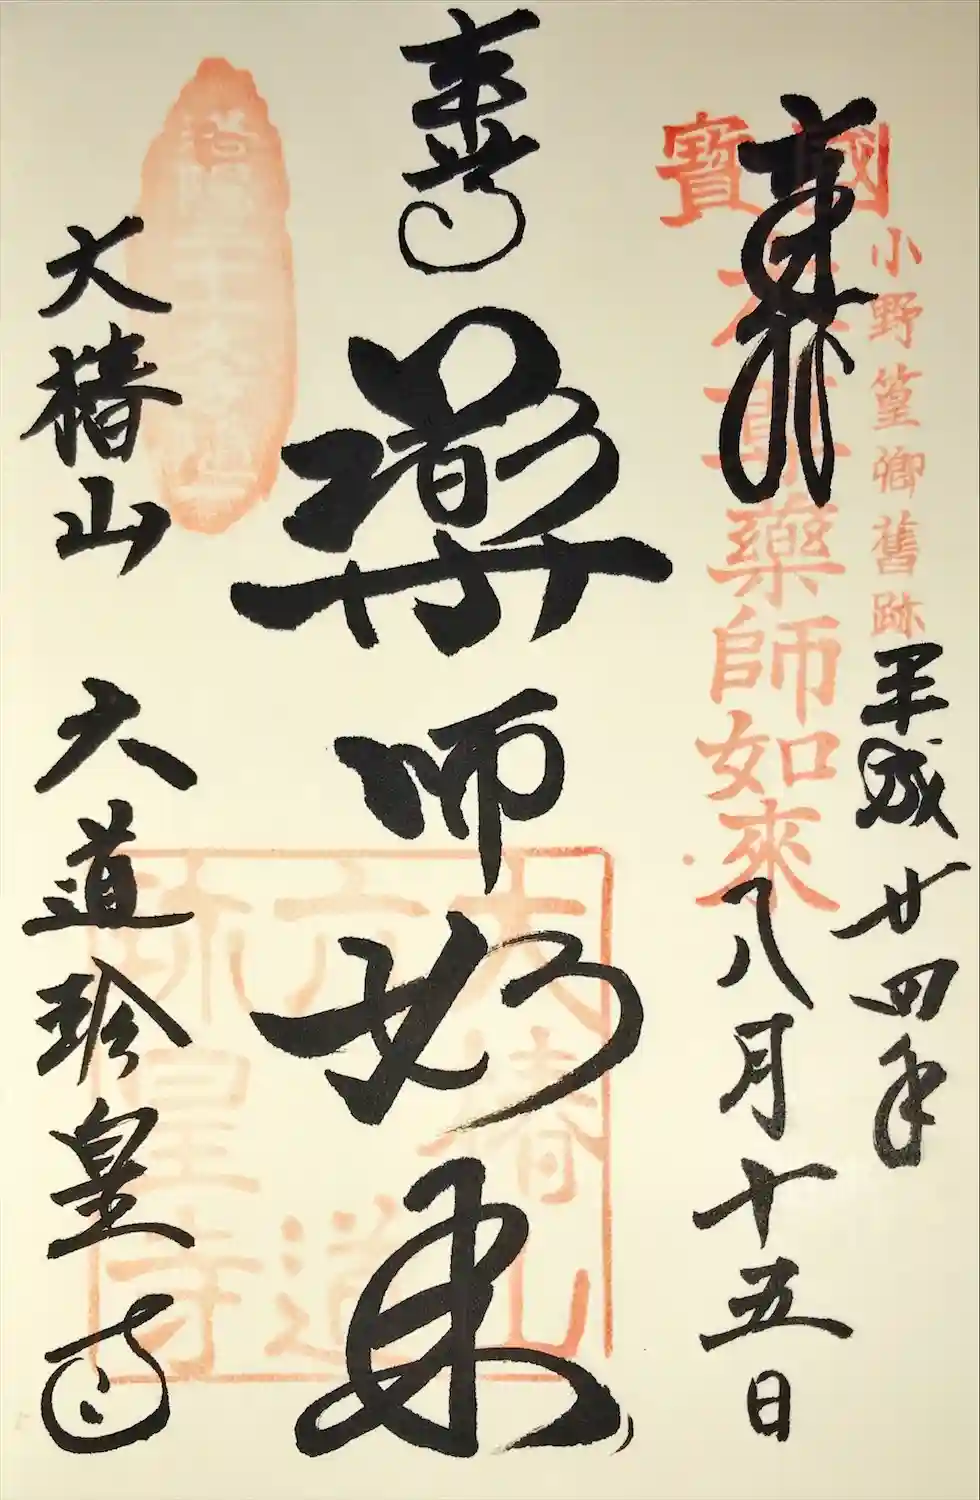 小野篁卿舊跡
平成廿四年
奉拝
國寶
本尊藥師如來
八月十五日
藥師如来
大椿山
六道珍皇寺
大椿山
六道
珍皇寺